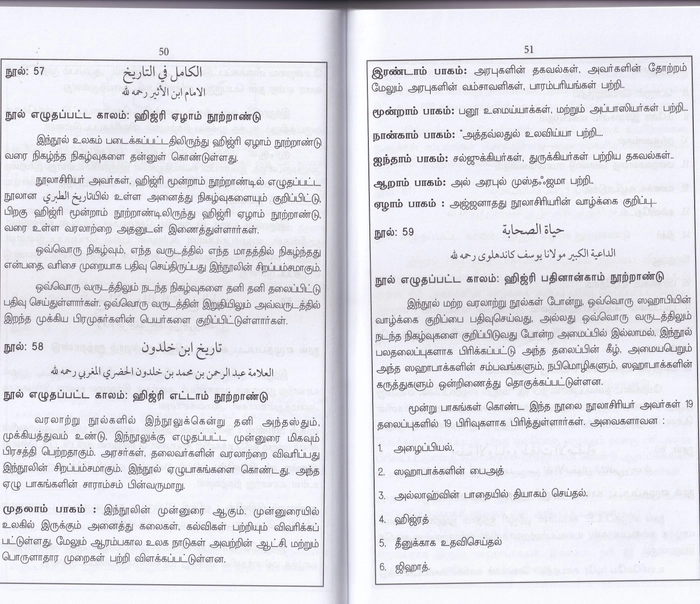 50
நூல்: 57 الكامل في التاريخ
الامام ابن الأثير رحمه لله
நூல் எழுதப்பட்ட காலம்: ஹிஜ்ரி ஏழாம் நூற்றாண்டு
இந்நூல் உலகம் படைக்கப்பட்டதிலிருந்து ஹிஜ்ரி ஏழாம் நூற்றாண்டு
வரை நிகழ்ந்த நிகழ்வுகளை தன்னுள் கொண்டுள்ளது.
நூலாசிரியர் அவர்கள், ஹிஜ்ரி மூன்றாம் நூற்றாண்டில் எழுதப்பட்ட
நூலான تاريخ الطبري யில் உள்ள அனைத்து நிகழ்வுகளையும் குறிப்பிட்டு,
பிறகு ஹிஜ்ரி மூன்றாம் நூற்றாண்டிலிருந்து ஹிஜ்ரி ஏழாம் நூற்றாண்டு,
வரை உள்ள வரலாற்றை அதனுடன் இணைத்துள்ளார்கள்.
ஒவ்வொரு நிகழ்வும், எந்த வருடத்தில் எந்த மாதத்தில் நிகழ்ந்தது
என்பதை, வரிசை முறையாக பதிவு செய்திருப்பது இந்நூலின் சிறப்பம்சமாகும்.
ஒவ்வொரு வருடத்திலும் நடந்த நிகழ்வுகளை தனி தனி தலைப்பிட்டு
பதிவு செய்துள்ளார்கள். ஒவ்வொரு வருடத்தின் இறுதியிலும் அவ்வருடத்தில்
இறந்த முக்கிய பிரமுகர்களின் பெயர்களை குறிப்பிட்டுள்ளார்கள்.
நூல்: 58 تاريخ ابن خلدون
العلامة عبد الرحمن بن محمد بن خلدون الحضري المغربي رحمه لله
நூல் எழுதப்பட்ட காலம்: ஹிஜ்ரி எட்டாம் நூற்றாண்டு
வரலாற்று நூல்களில் இந்நூலுக்கென்று தனி அந்தஸ்தும்,
முக்கியத்துவம் உண்டு, இந்நூலுக்கு எழுதப்பட்ட முன்னுரை மிகவும்
பிரசத்தி பெற்றதாகும். அரசர்கள், தலைவர்களின் வரலாற்றை விவரிப்பது
இந்நூலின் சிறப்பம்சமாகும். இந்நூல் ஏழுபாகங்களை கொண்டது. அந்த
ஏழு பாகங்களின் சாராம்சம் பின்வருமாறு.
முதலாம் பாகம் : இந்நூலின் முன்னுரை ஆகும். முன்னுரையில்
உலகில் இருக்கும் அனைத்து கலைகள், கல்விகள் பற்றியும் விவரிக்கப்
பட்டுள்ளது. மேலும் ஆரம்பகால உலக நாடுகள் அவற்றின் ஆட்சி, மற்றும்
பொருளாதார முறைகள் பற்றி விளக்கப்பட்டுள்ளன.
51
இரண்டாம் பாகம்: அரபுகளின் தகவல்கள், அவர்களின் தோற்றம்
மேலும் அரபுகளின் வம்சாவளிகள், பாரம்பரியங்கள் பற்றி.
மூன்றாம் பாகம்: பனூ உமைய்யாக்கள், மற்றும் அப்பாஸியர்கள் பற்றி.
நான்காம் பாகம்: அத்தவ்லதுல் உலவிய்யா பற்றி..
ஐந்தாம் பாகம்: சல்ஜுக்கியர்கள், துருக்கியர்கள் பற்றிய தகவல்கள்..
ஆறாம் பாகம்: அல் அரபுல் முஸ்தஃஜமா பற்றி.
ஏழாம் பாகம் : அஜ்ஜனாதது நூலாசிரியரின் வாழ்க்கை குறிப்பு.
நூல்: 59 حياة الصحابة
الداعية الكبير مولانا يوسف كاندهلوى رحمه لله
நூல் எழுதப்பட்ட காலம்: ஹிஜ்ரி பதினான்காம் நூற்றாண்டு
இந்நூல் மற்ற வரலாறு நூல்கள் போன்று, ஒவ்வொரு ஸஹாபியின்
வாழ்க்கை குறிப்பை பதிவுசெய்வது, அல்லது ஒவ்வொரு வருடத்திலும்
நடந்த நிகழ்வுகளை குறிப்பிடுவது போன்ற அமைப்பில் இல்லாமல், இந்நூல்
பலதலைப்புகளாக பிரிக்கப்பட்டு அந்த தலைப்பின் கீழ், அமையபெறும்
அந்த ஸஹாபாக்களின் சம்பவங்களும், நபிமொழிகள், ஸஹாபாக்களின்
கருத்துகளும் ஒன்றிணைத்து தொகுக்கப்பட்டுள்ளன.
மூன்று பாகங்கள் கொண்ட இந்த நூலை நூலாசிரியர் அவர்கள் 19
தலைப்புகளில் 19 பிரிவுகளாக பிரித்துள்ளார்கள். அவைகளாவன :
1. அழைப்பியல்.
2. ஸஹாபாக்களின் பைஅத்
3. அல்லாஹ்வின் பாதையில் தியாகம் செய்தல்.
4. ஹிஜ்ரத்
5. தீனுக்காக உதவிசெய்தல்
6. ஜிஹாத்.